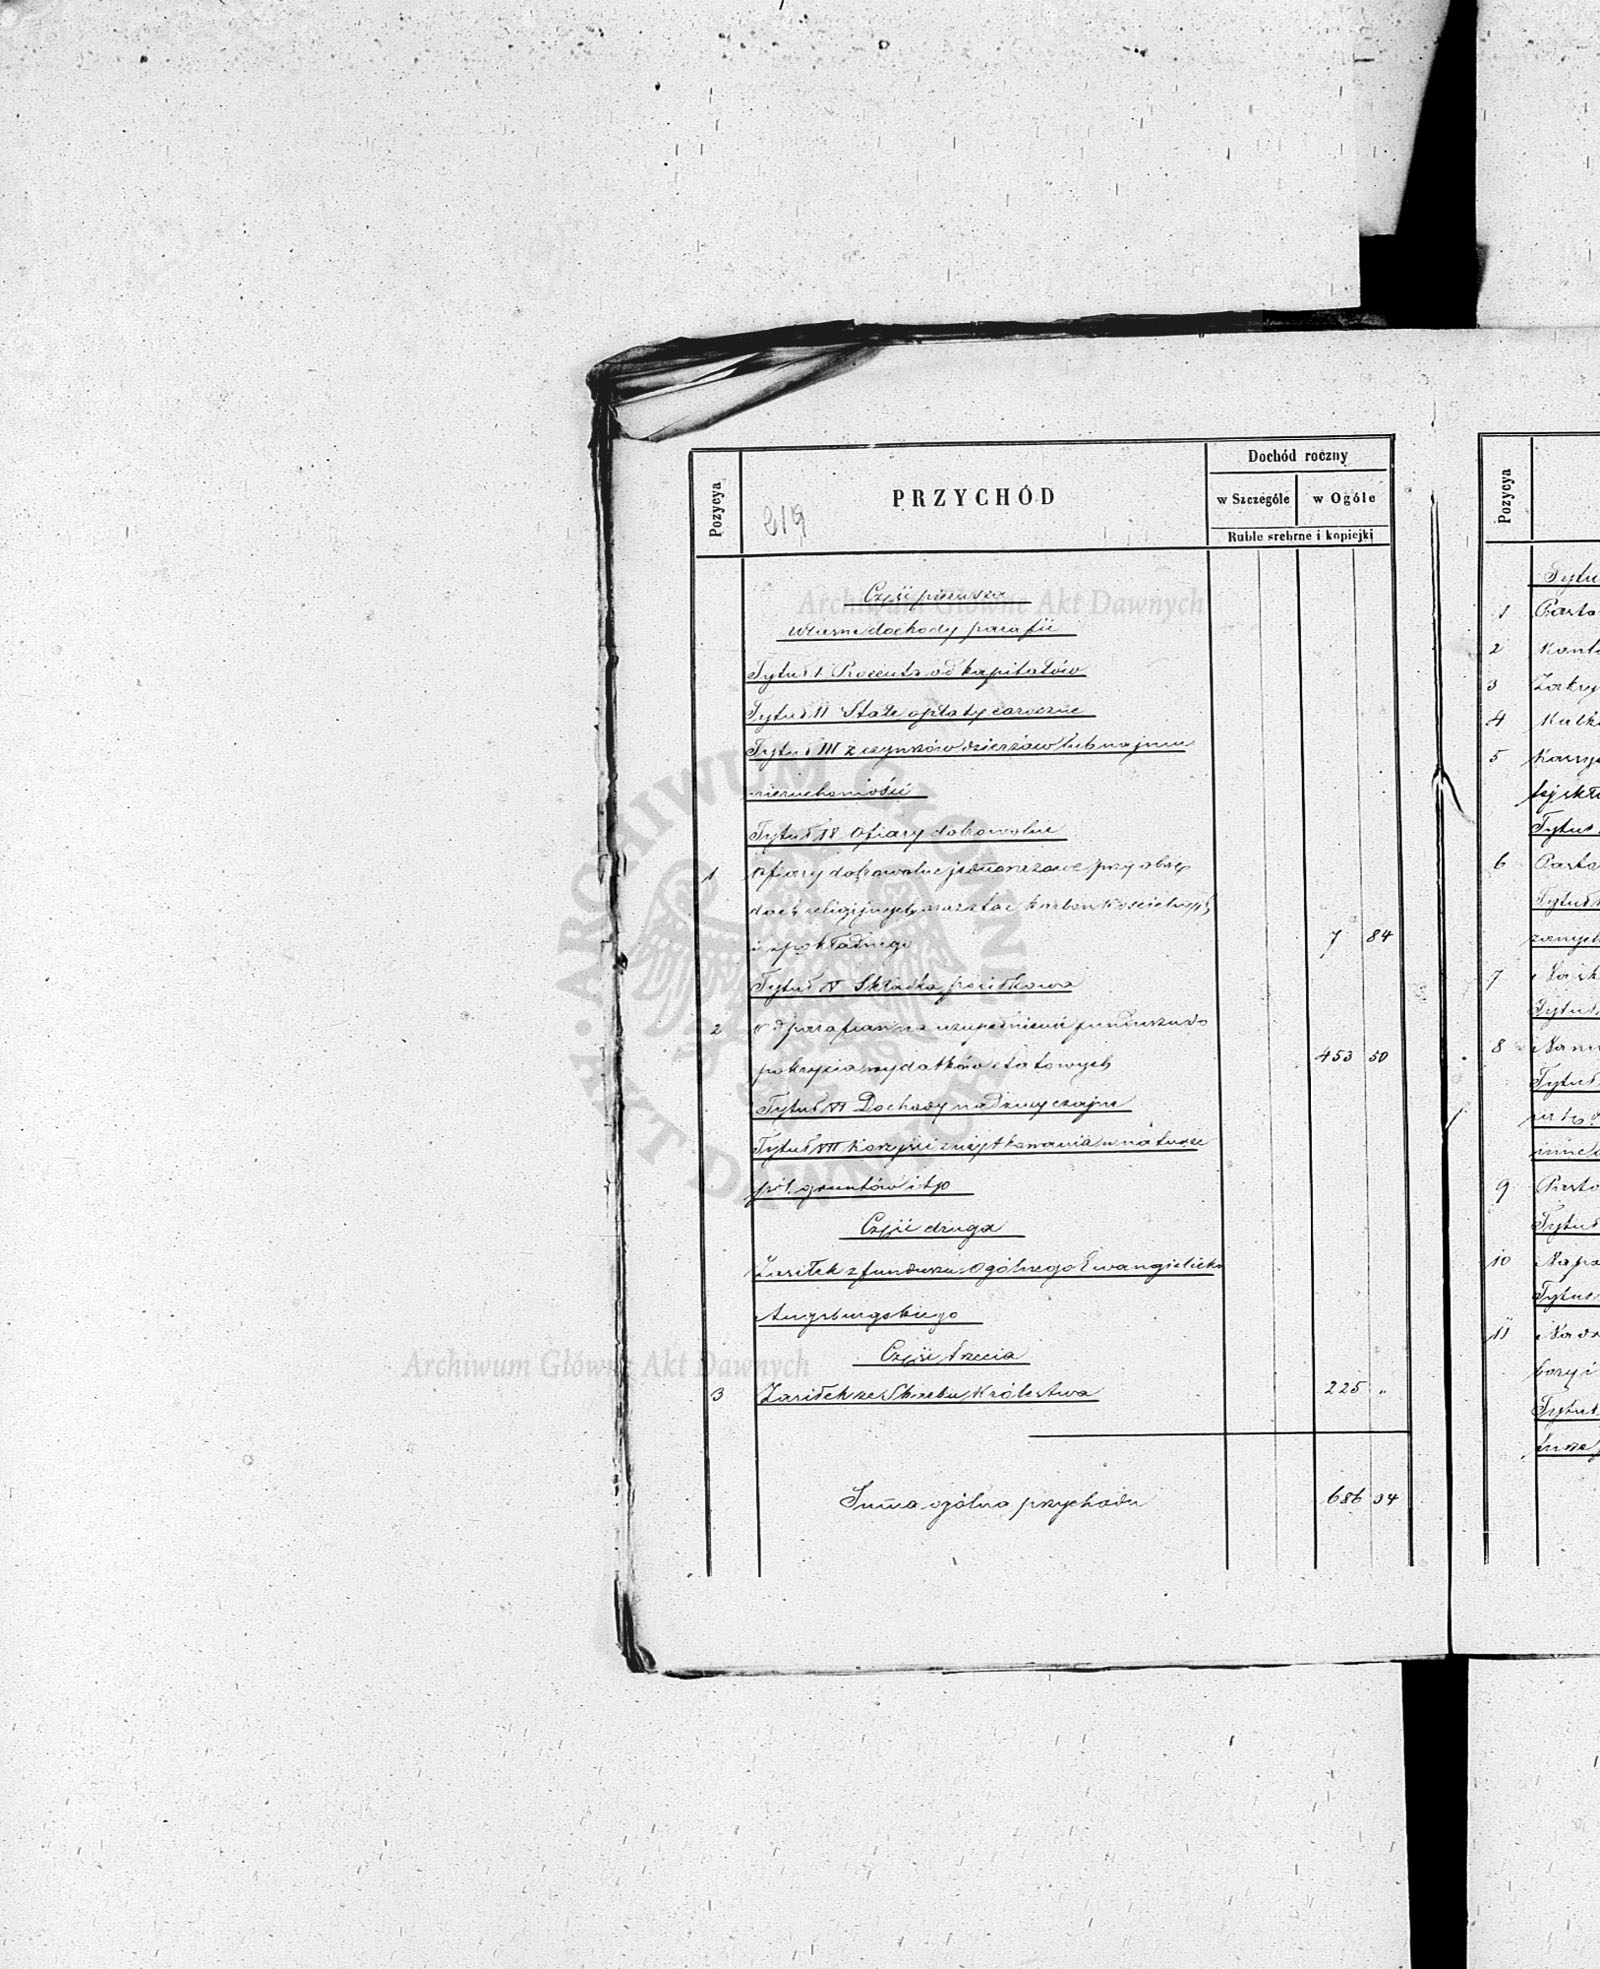 Pozycya
PRZYCHÓD
219
Dochód roczny
w Szczególe
w Ogóle
Ruble srebrne i kopiejki
Część pierwsza
Własne dochody parafii
Tytuł I Procenta od kapitałów
Tytuł II Stałe opłaty coroczne
Tytuł III z czynszów dzierżaw lub najmu
nieruchomości
Tytuł IV Ofiary dobrowolne
1 Ofiary dobrowolne jednorazowe przy obrzę
dach religijnych oraz z tac karbon kościelnych
i zpokładnego 7 84
Tytuł V Składka posiłkowa
2 Od parafian na uzupełnienie funduszu do
pokrycia wydatków etatowych 453 50
Tytuł VI Dochody nadzwyczajne
Tytuł VII Korzyści z użytkowania w naturze
pól gruntów itp
Część druga
Zasiłek z funduszu Ogólnego Ewangielicko
Augsburgskiego
Część trzecia
3 Zasiłek ze Skarbu Królestwa 225 "
Suma ogólna przychodu 686 34
Pozycya
1
2
3
4
5
6
7
8
9
10
11
Archiwum Główne Akt Dawnych
Archiwum Główne Akt Dawnych
ARCHIWUM GŁÓWNE AKT DAWNYCH